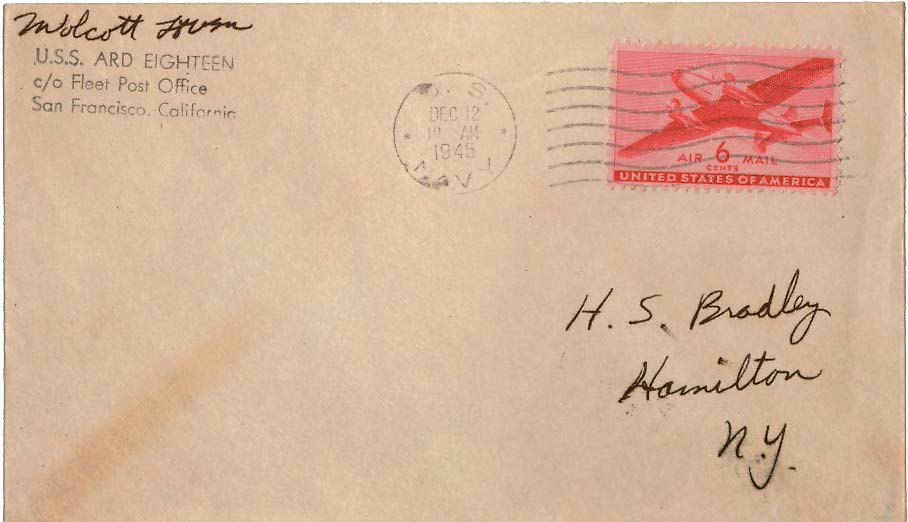 Wolcott
U.S.S. ARD EIGHTEEN
c/o Fleet Post Office
San Francisco, California
U. S.
DEC 12
AM
1945
NAVY
AIR 6 MAIL
CENTS
UNITED STATES OF AMERICA
H. S. Bradley
Hamilton
N.Y.